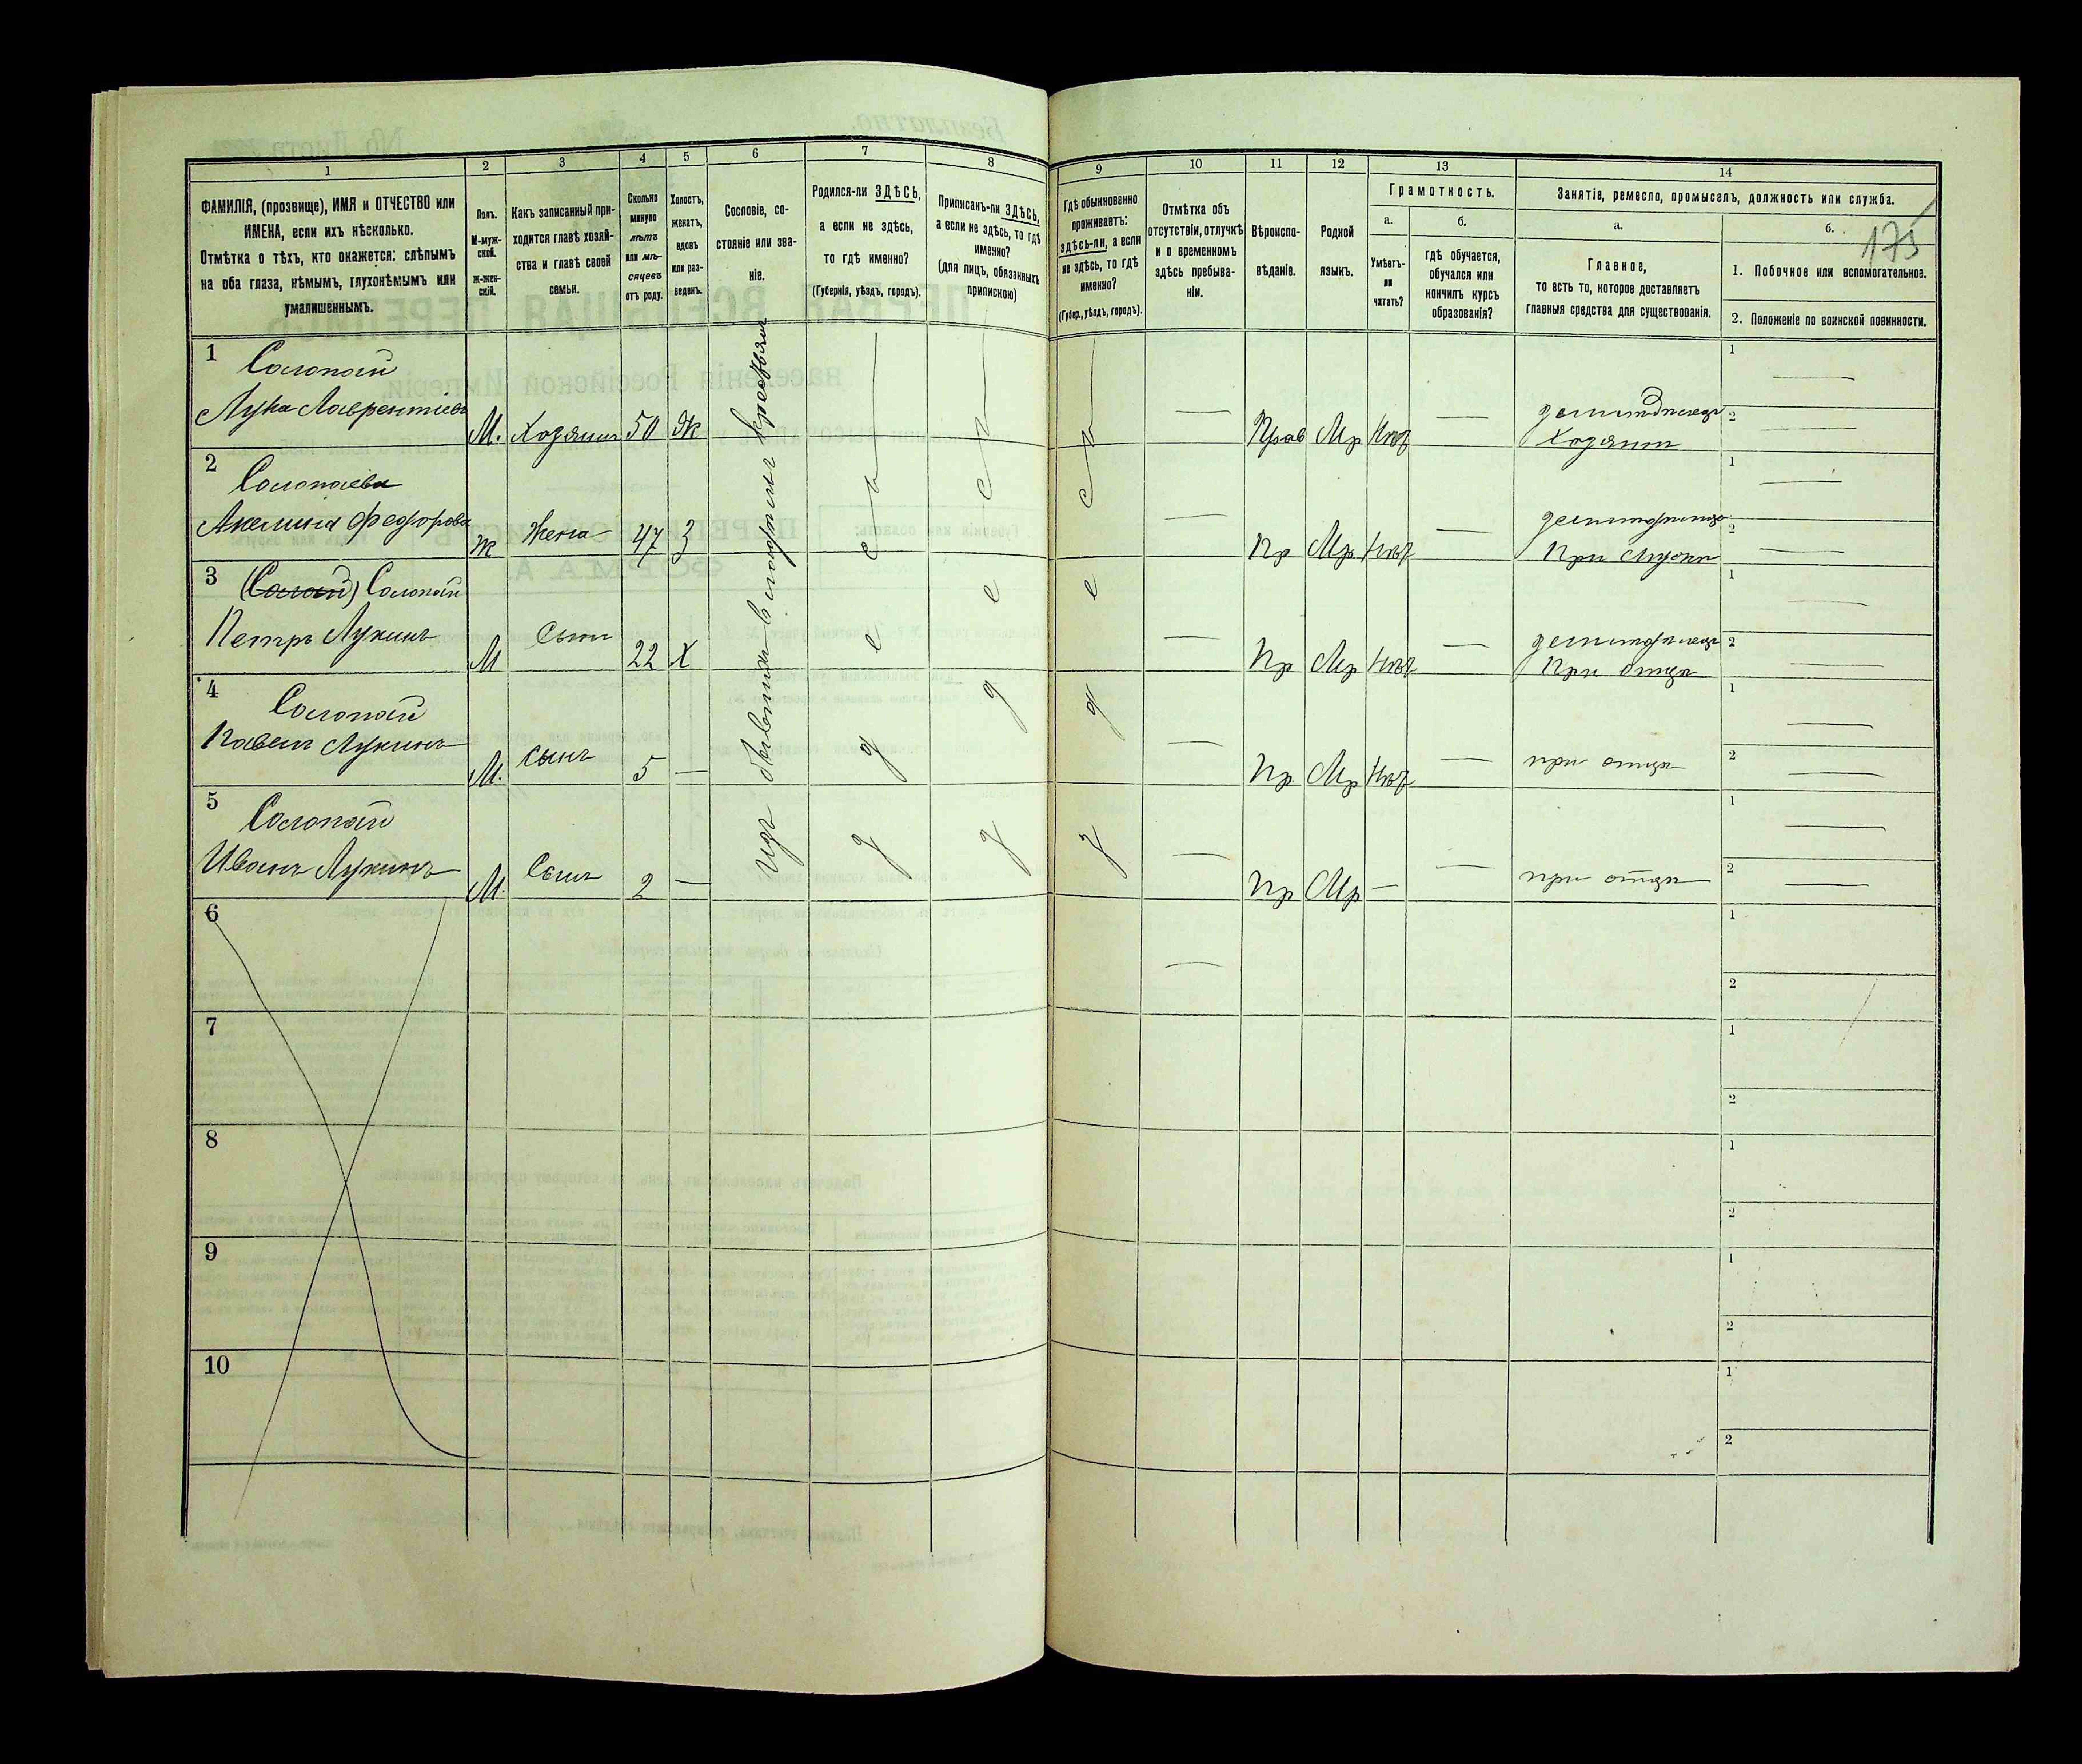 1
2
3
4
5
6
7
8
9
10
11
12
13
14
ФАМИЛІЯ, (прозвище), ИМЯ и ОТЧЕСТВО или
ИМЕНА, если ихъ нѣсколько.
Отмѣтка о тѣхъ, кто окажется: слѣпымъ
на оба глаза, нѣмымъ, глухонѣмымъ или
умалишеннымъ.
Полъ.
М-муж-
ской.
Ж-жен-
скій.
Какъ записанный при-
ходится главѣ хозяй-
ства и главѣ своей
семьи.
Сколько
минуло
лѣтъ
или мѣ-
сяцевъ
отъ роду.
Холостъ,
женатъ,
вдовъ
или раз-
веденъ.
Сословіе, со-
стояніе или зва-
ніе.
Родился-ли ЗДѢСЬ,
а если не здѣсь,
то гдѣ именно?
(Губернія, уѣздъ, городъ).
Приписанъ-ли ЗДѢСЬ,
а если не здѣсь, то гдѣ
именно?
(для лицъ, обязанныхъ
припискою)
Гдѣ обыкновенно
проживаетъ:
здѣсь-ли, а если
не здѣсь, то гдѣ
именно?
(Губер., уѣздъ, городъ).
Отмѣтка объ
отсутствіи, отлучкѣ
и о временномъ
здѣсь пребыва-
ніи.
Вѣроиспо-
вѣданіе.
Родной
языкъ.
Грамотность.
а.
Умѣетъ-
ли
читать?
б.
гдѣ обучается,
обучался или
кончилъ курсъ
образованія?
Занятіе, ремесло, промыселъ, должность или служба.
а.
Главное,
то есть то, которое доставляетъ
главныя средства для существованія.
б.
175
1. Побочное или вспомогательное.
2. Положеніе по воинской повинности.
1 Солопай
Лука Лаврентіевъ М. Хозяинъ 50 Ж Прав Мр Нѣт земледѣлецъ
Хозяинъ
2 Солопаева
Акелина Федорова Ж Жена 47 З Пр Мр Нѣт
При мужѣ
3 Солопай
Петръ Лукинъ М Сынъ 22 Х Пр Мр Нѣт
При отцѣ
4 Солопай
Павелъ Лукинъ М. сынъ 5 — Пр Мр Нѣт при отцѣ
5 Солопай
Иванъ Лукинъ М. Сынъ 2 — Пр Мр — при отцѣ
6
7
8
9
10